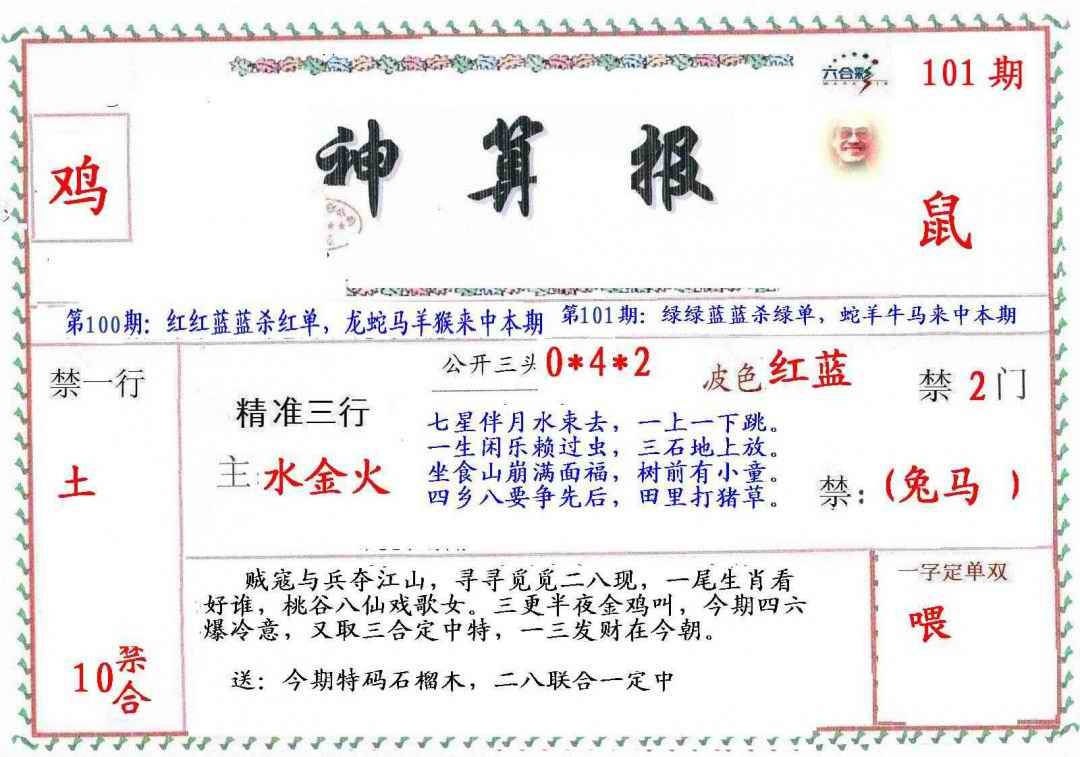 六合彩
101 期
鸡
神算报
鼠
第100期：红红蓝蓝杀红单，龙蛇马羊猴来中本期
第101期：绿绿蓝蓝杀绿单，蛇羊牛马来中本期
禁一行
土
10禁合
精准三行
主：水金火
公开三头0*4*2
波色红蓝
七星伴月水束去，一上一下跳。
一生闲乐赖过虫，三石地上放。
坐食山崩满面福，树前有小童。
四乡八要争先后，田里打猪草。
禁2门
禁：(兔马 )
贼寇与兵夺江山，寻寻觅觅二八现，一尾生肖看
好谁，桃谷八仙戏歌女。三更半夜金鸡叫，今期四六
爆冷意，又取三合定中特，一三发财在今朝。
送：今期特码石榴木，二八联合一定中
一字定单双
喂